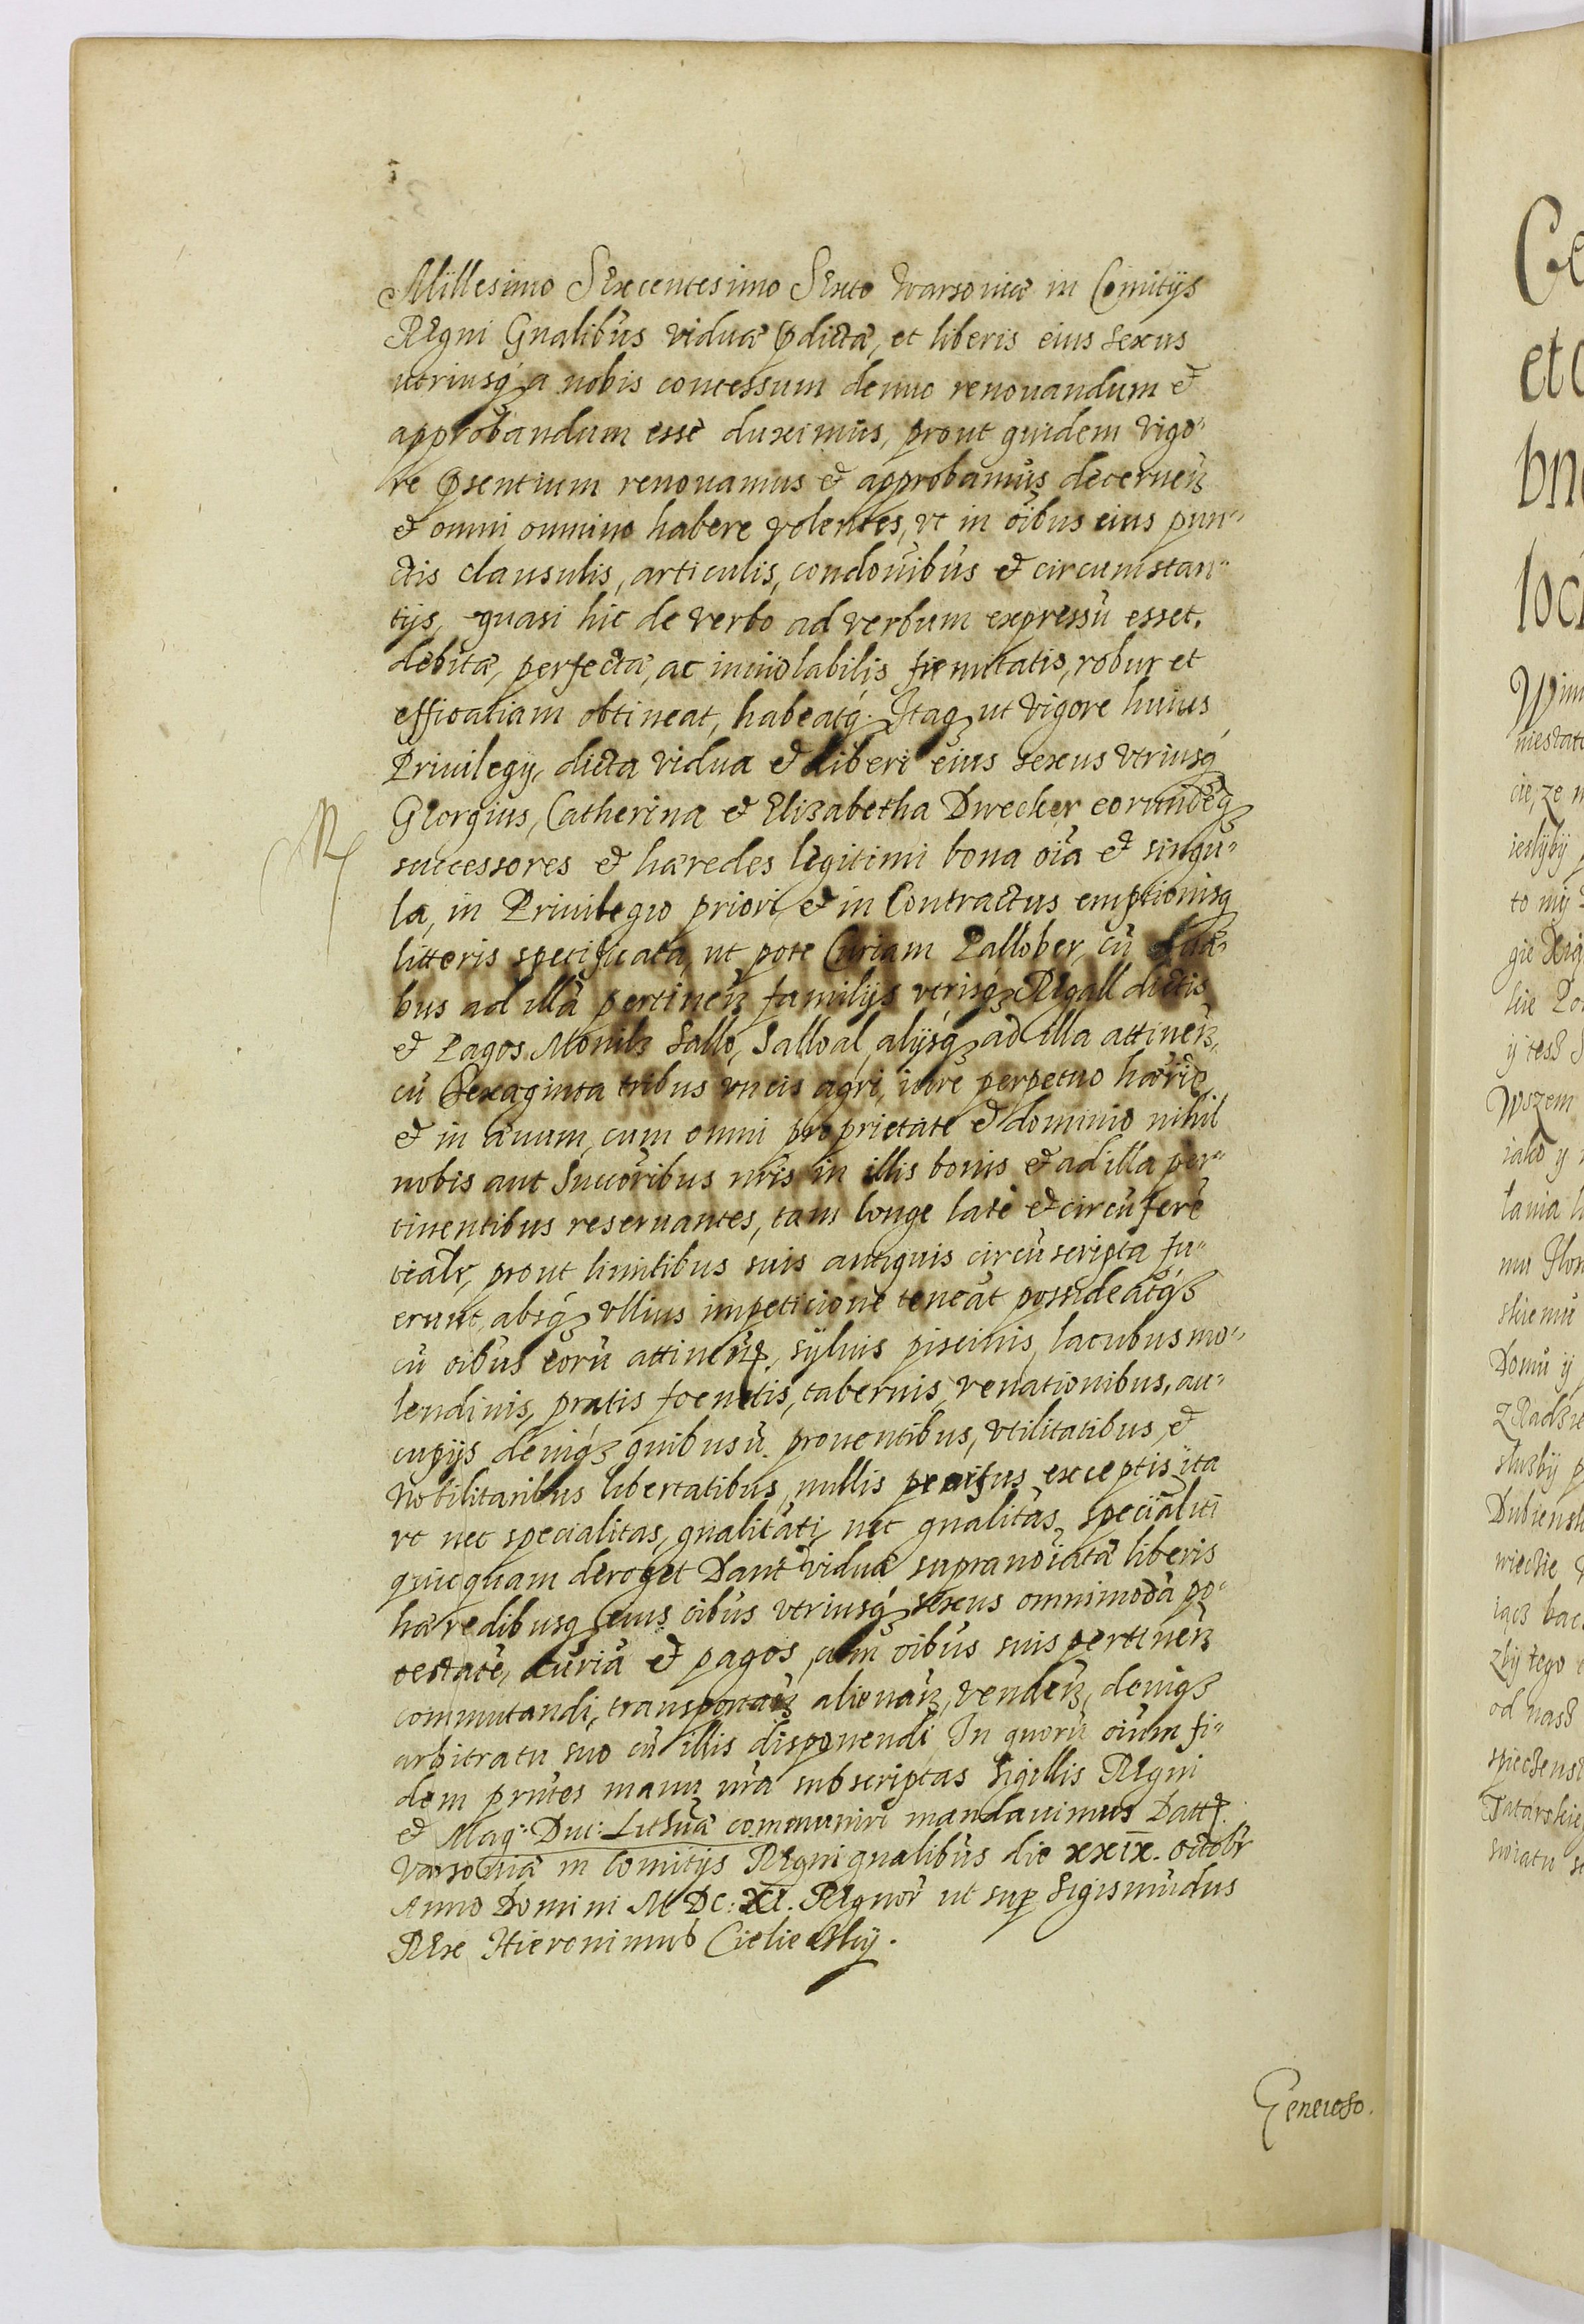 Millesimo Sexcentesimo Sexto Warsouiæ in Comitijs
Regni Gnalibus viduæ pdictæ, et liberis eius sexus
utriusq́ a nobis concessum denuo renouandum et
approbandum esse duximus, prout quidem vigo"
re psentium renouamus et approbamus decernen
et omni omnino habere volentes, vt in oibus eius pun"
ctis clausulis, articulis, condonibus et circumstan"
tijs, quasi hic de verbo ad verbum expressũ esset.
debitæ, perfectæ, ac inuiolabilis firmitatis, robur et
efficatiam obtineat, habeatq́: Itaq ut vigore huius
Priuilegy, dicta vidua et liberi eius sexus vtriusq́
Georgius, Catherina et Elizabetha Dwecker eorundẽq
successores et hæredes legitimi bona oĩa et singu"
la, in Priuilegio priori, et in Contractus emptionisq
litteris specificata, ut pote Curiam Pallober, cũ
bus ad illã pertinen familijs vtrisq Regall dictis
et Pagos Sallo, Salloal, alijsq ad illa attinen,
cũ Sexaginta tribus vncis agri, iure perpetuo hærio
et in æuum, cum omni proprietate et dominio nihil
nobis aut Succoribus nris in illis bonis et ad illa per"
tinentibus reseruantes, tam longe late et circũferẽ
tialr, prout limitibus suis antiquis circũscripta fu"
erunt, absq́ vllius impeticione teneãt possideãtq́
cũ oibus eorũ attinen, syluis piscinis, lacubus mo"
lendinis, pratis foenetis, tabernis, venationibus, au"
cupijs deniq́ quibusũ prouentibus, vtilitatibus, et
Nobilitaribus libertatibus, nullis penitus exceptis ita
vt nec specialitas, gnalitati, nec gnalitas specialiti
quicquam deroget Dant viduæ supranoiatæ liberis
hæredibusq eius oibus vtriusq́ sexus omnimodã po"
testatẽ, curiã et pagos, cum oibus suis pertinen
commutandi, transponen alienan, venden, deniq́
arbitratu suo cũ illis disponendi In quorũ oium fi"
dem prntes manu nra subscriptas Sigillis Regni
et Mag: Duc: Lithuæ communiri mandauimus Datt
Varsouiæ in Comitijs Regni gnalibus die xxix. octobr
Anno Domini M DC: XI. Regnor ut sup Sigismũdus
Rex Hieronimus Cieliesky.
Generoso.